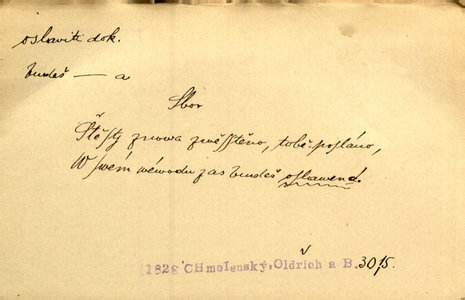 oslaviti dok.
budeš — a
Sbor
Štěstj znowa zwěsstěno, tobě posláno,
W swém wéwodu zas budeš oslawena.
(1828 CHmelenský, Oldřich a B. 30,5.